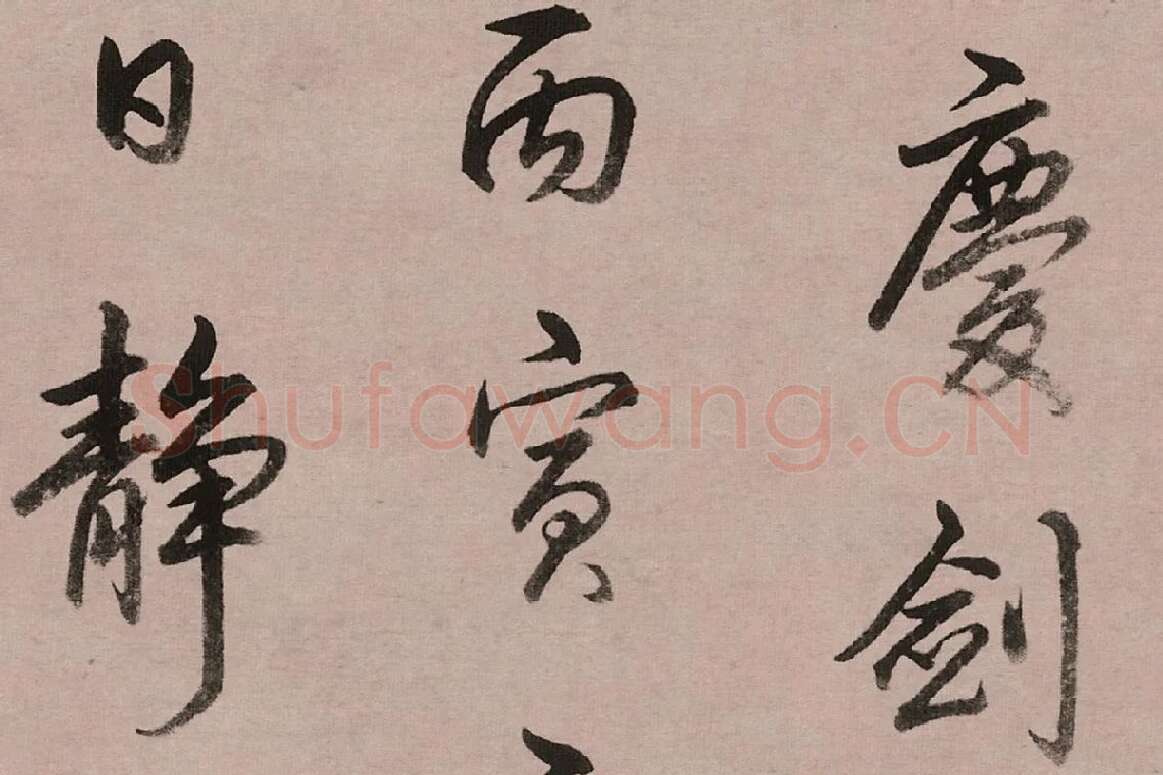 慶劍
丙寅
日靜
Shufawang.CN